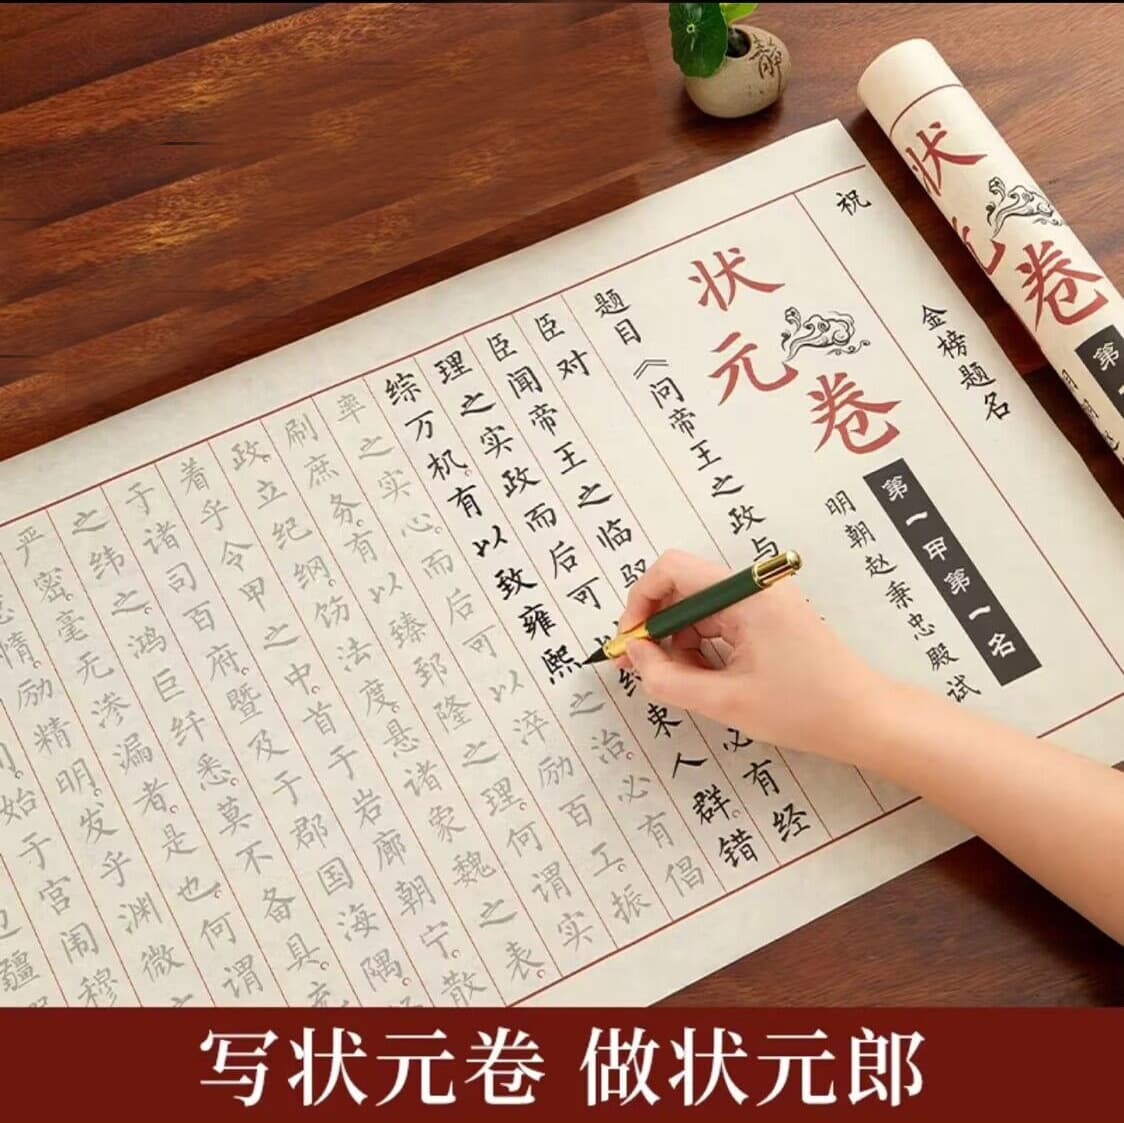 祝
金榜题名
状元卷
第一甲第一名
明朝赵秉忠殿试
题目《问帝王之政与
臣对
臣闻帝王之临驭 必有经
理之实政而后可 约束人群。错
综万机。有以致雍熙之治必有倡
率之实心。而后可以淬励百工振
刷庶务。有以臻郅隆之理。何谓实
政。立纪纲。饬法度。悬诸象魏之表。
着乎令甲之中。首于岩廊朝宁。散
于诸司百府。暨及于郡国海隅。
之纬之。鸿巨纤悉。莫不备具。充
严密。毫无渗漏者。是也。何谓
惰。励精明。发乎渊微
始于宫闱穆
疆
状元卷
第
静
写状元卷 做状元郎